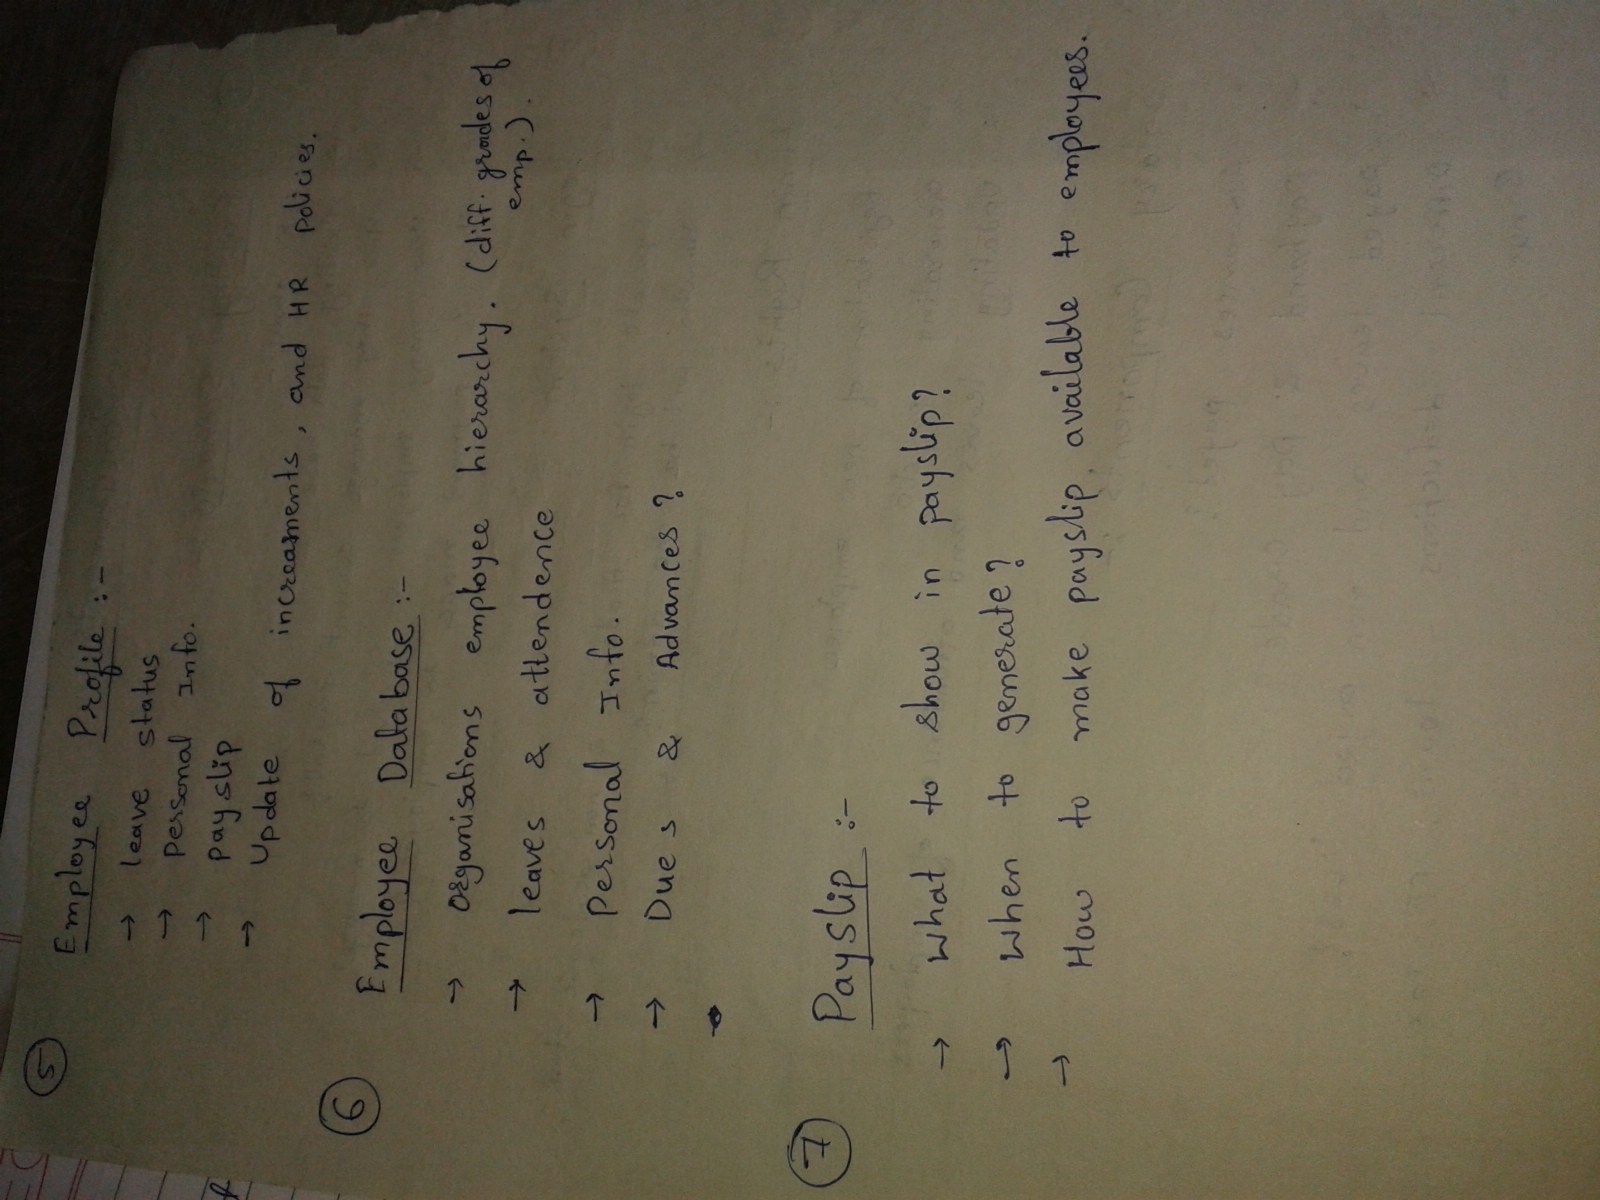 5
Employee Profile :-
→ leave status
→ Personal Info.
→ payslip
→ Update of increaments, and HR policies.
6
Employee Database :-
→ Organisations employee hierarchy. (diff. grades of
emp.).
→ leaves & attendence
→ Personal Info.
→ Dues & Advances?
7
Payslip :-
→ What to show in payslip?
→ When to generate?
→ How to make payslip available to employees.